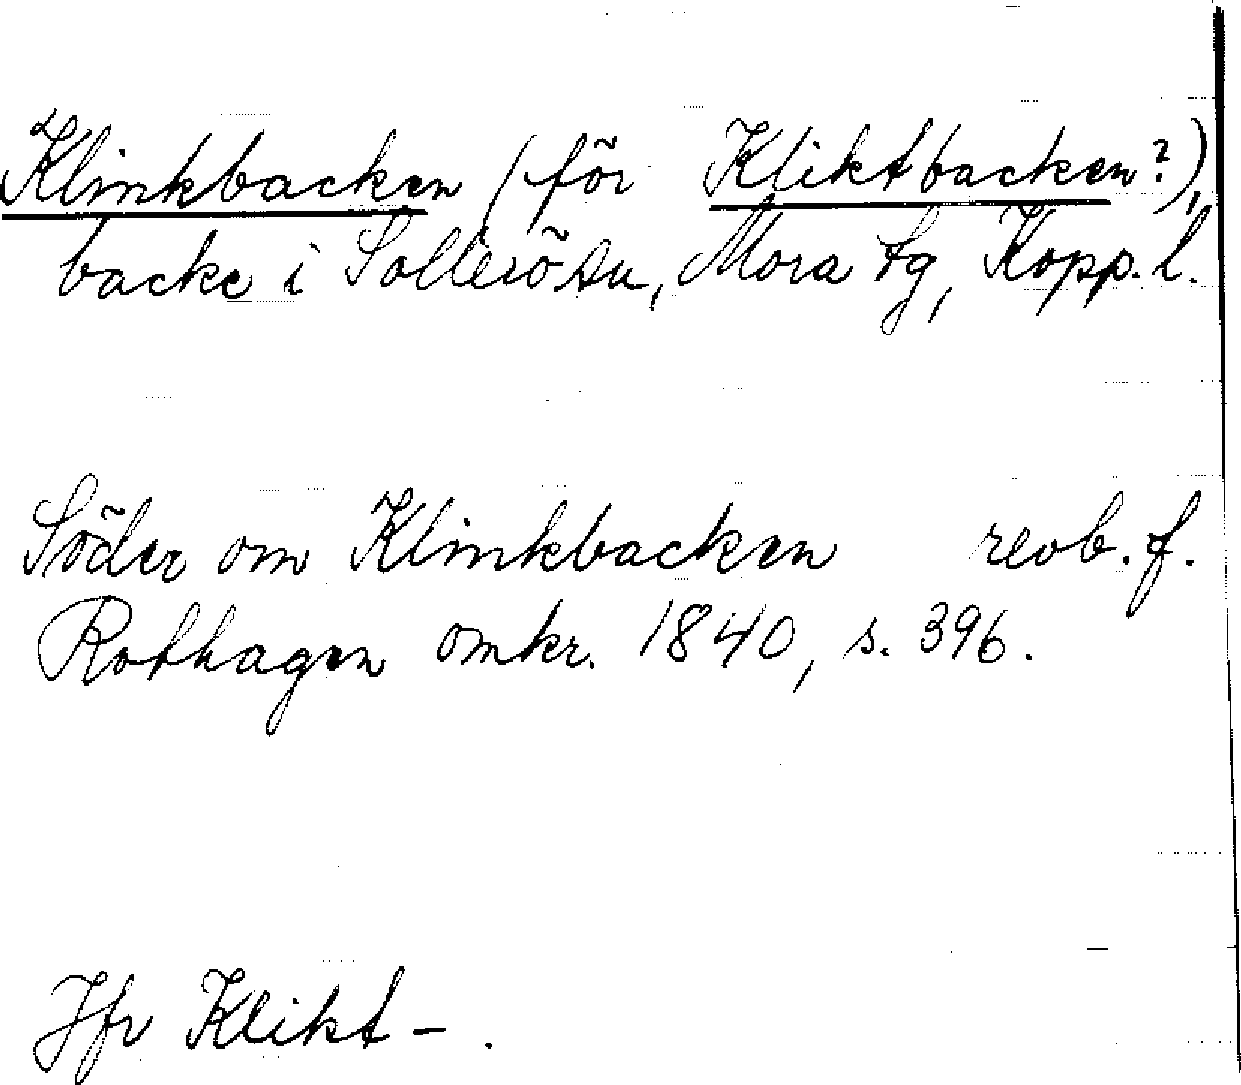 Klinkbacken (för Kliktbacken?),
backe i Sollerösn, Mora tg, Kopp. l.
Söder om Klinkbacken revb. f.
Rothagen omkr. 1840, s. 396.
Jfr Klikt-.